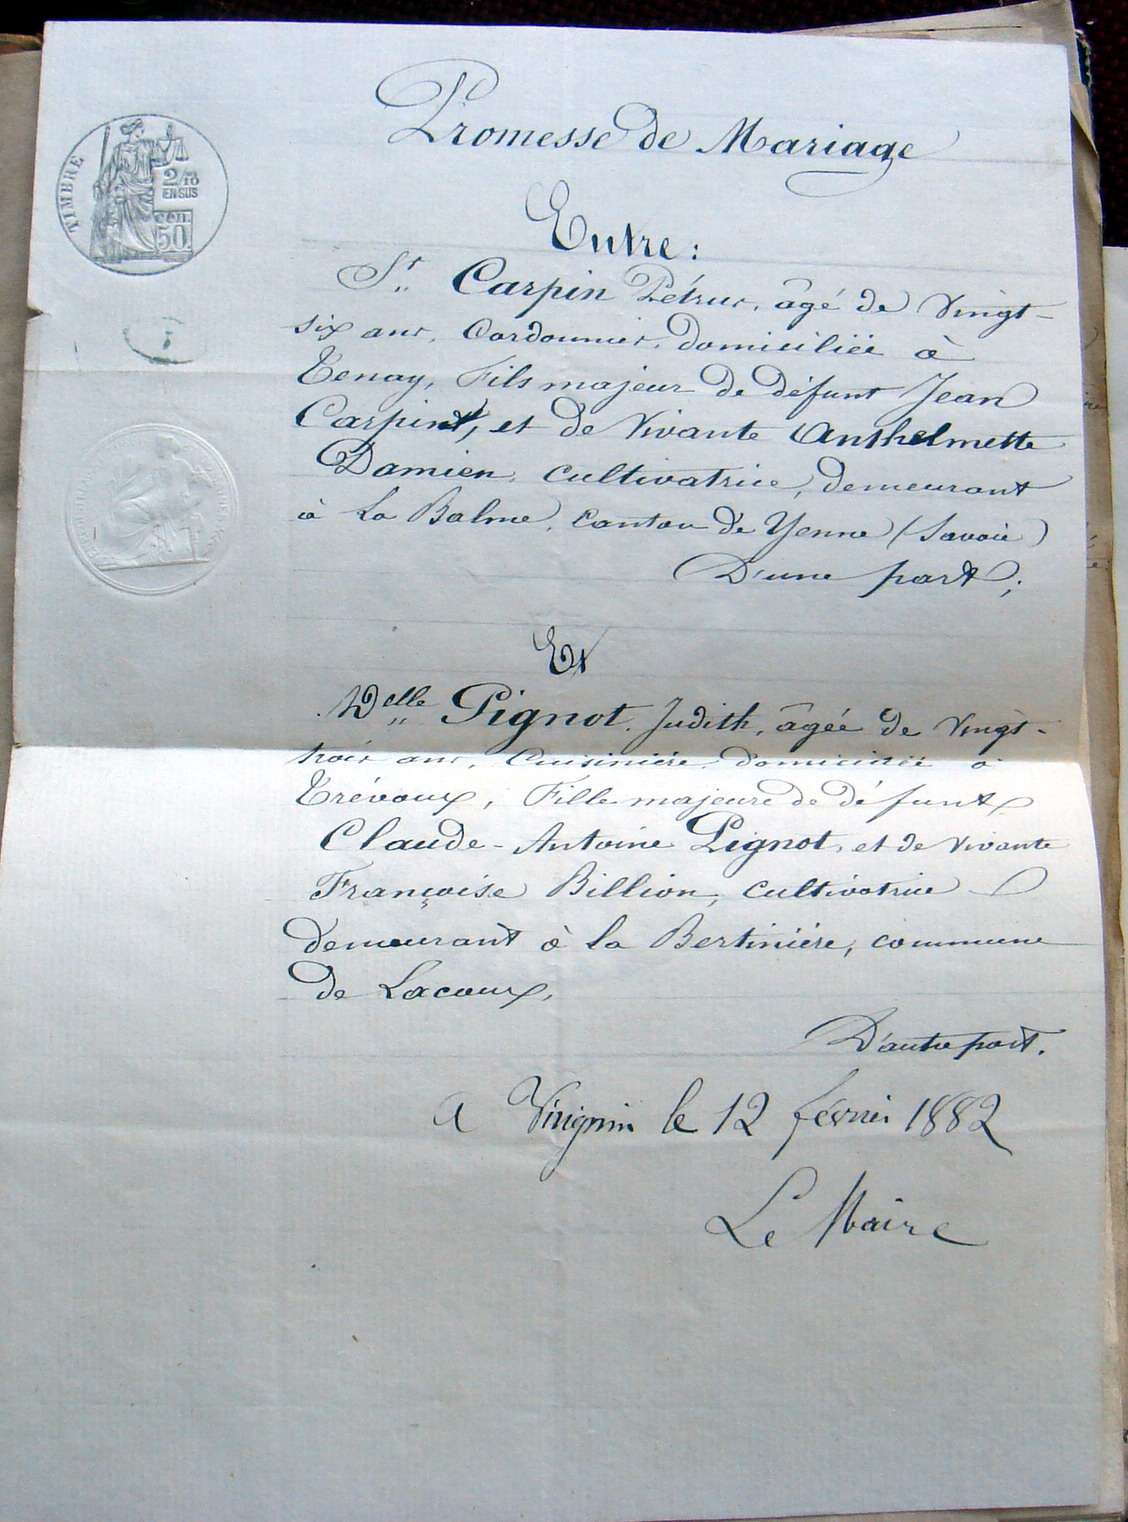 Promesse de Mariage
TIMBRE
2/10
EN SUS
CEN.
50
Entre :
Sr. Carpin Pétrus, âgé de Vingt-
six ans, Cordonnier, domiciliée à
Tenay, Fils majeur de défunt Jean
Carpin, et de Vivante Anthelmette
Damien, cultivatrice, demeurant
à La Balme, canton de Yenne (Savoie)
D'une part ;
Et
Delle Pignot, Judith, âgée de Vingt-
trois ans, Cuisinière, domiciliée à
Trévoux, Fille majeure de défunt
Claude-Antoine Pignot, et de vivante
Françoise Billion, cultivatrice
demeurant à la Bertinière, commune
de Lacoux,
D'autre part.
A Virignin le 12 février 1882
Le Maire